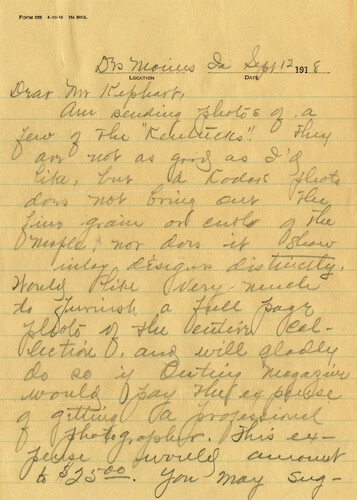 FORM 285 4-10-18 1M BKS.
Des Moines Ia Sept 12 1918
LOCATION DATE
Dear Mr Kephart,
Am sending photos of a
few of the "Kentucks". They
are not as good as I'd
like, but a Kodak photo
does not bring out the
fine grain or curls of the
maple, nor does it show
inlay designs distinctly.
Would like very much
to furnish a full page
photo of the entire col-
lection, and will gladly
do so if Outing Magazine
would pay the expense
of getting a professional
photographer. This ex-
pense would amount
to $25.00. You may sug-